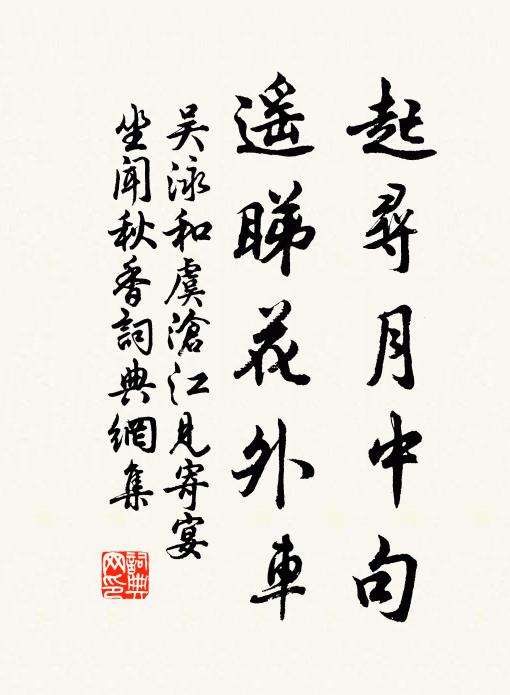 起尋月中句
遥睇花外車
吴泳和虞滄江見寄宴
坐聞秋香詞典網集
詞典網印